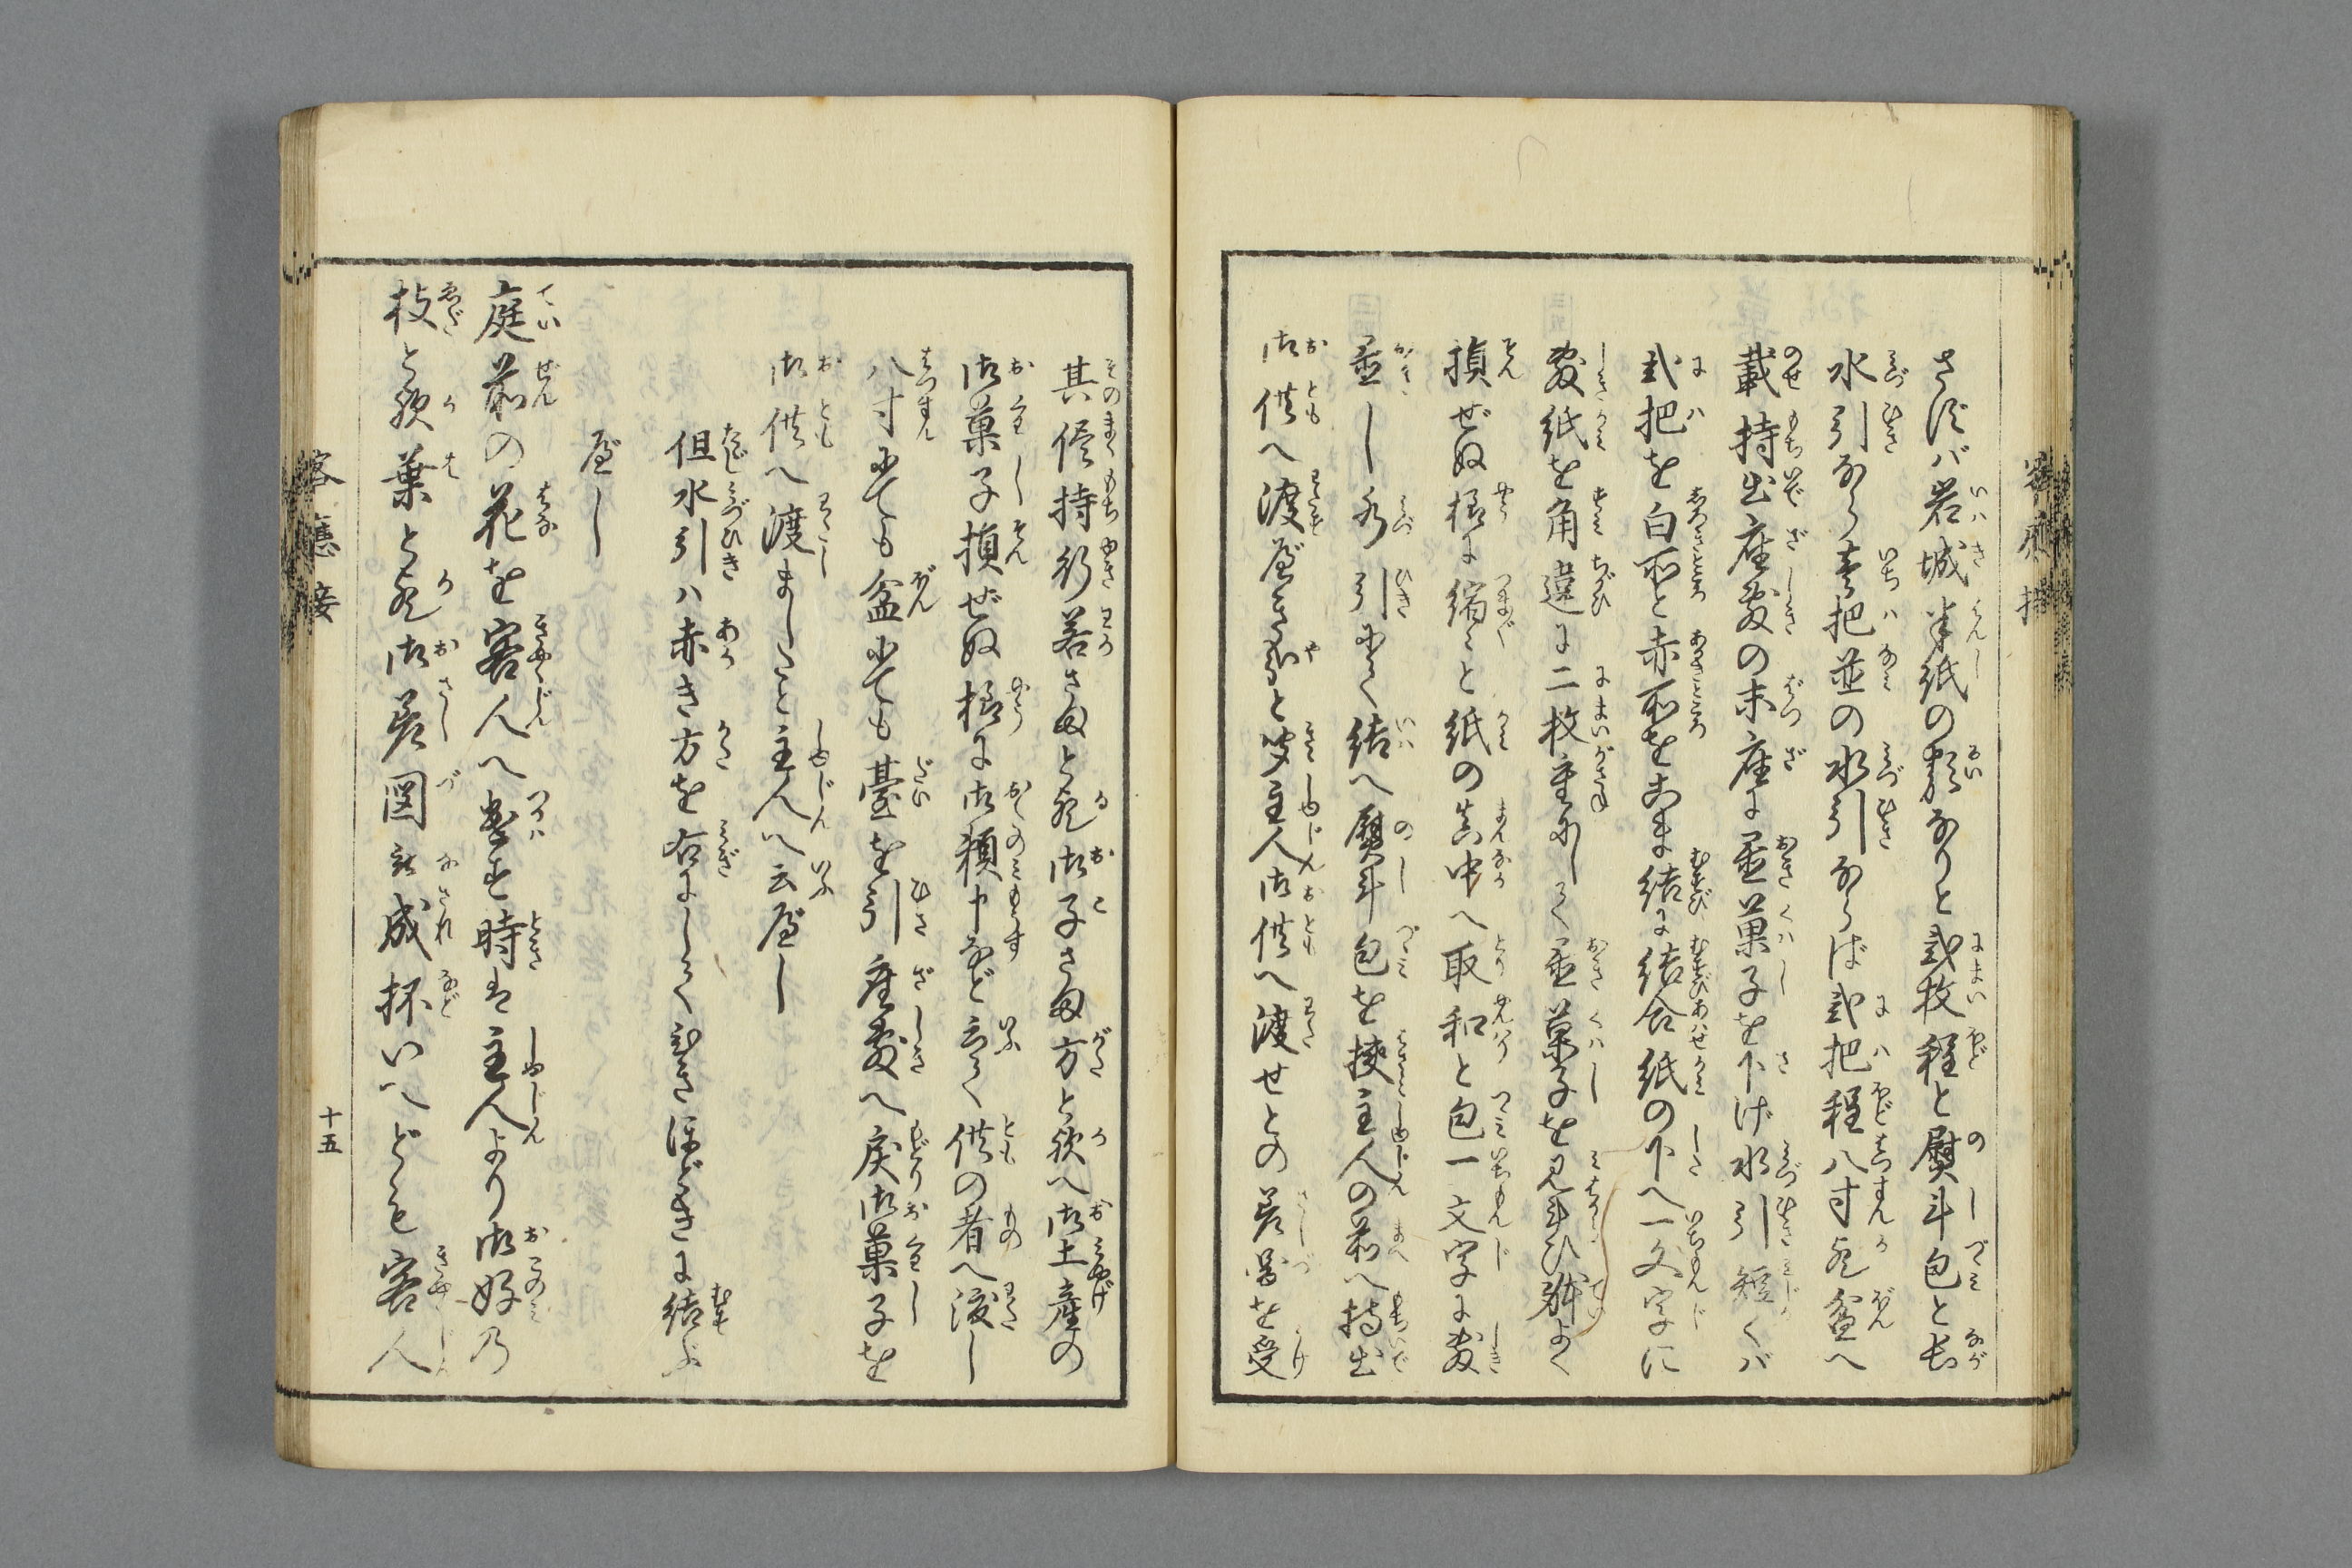 さなくバ岩城半紙の類なりと弐枚程と熨斗包と長
水引なら壱把並の水引ならば弐把程八寸か盆へ
載持出座敷の末座に置菓子を下げ水引短くバ
弐把を白所と赤所をこま結に結合紙の下へ一文字に
敷紙を角違に二枚重にして置菓子を見斗ひ能よく
損ぜぬ様に縮ミと紙の真中へ取和と包一文字に敷
置し水引にて結へ熨斗包を挟主人の前へ持出
御供へ渡べきやと聞主人御供へ渡せとの差図を受
其侭持行若さまとか御子さま方とかへ御土産の
御菓子損ぜぬ様に御頼申など云て供の者へ渡し
八寸にても盆にても臺を引座敷へ戻御菓子を
御供へ渡ましたと主人へ云べし
但水引ハ赤き方を右にしてひきほどきに結ぶ
べし
庭前の花を客人へ遣す時は主人より御好の
枝とか葉とか御差図被成抔いへども客人
客應接
十五